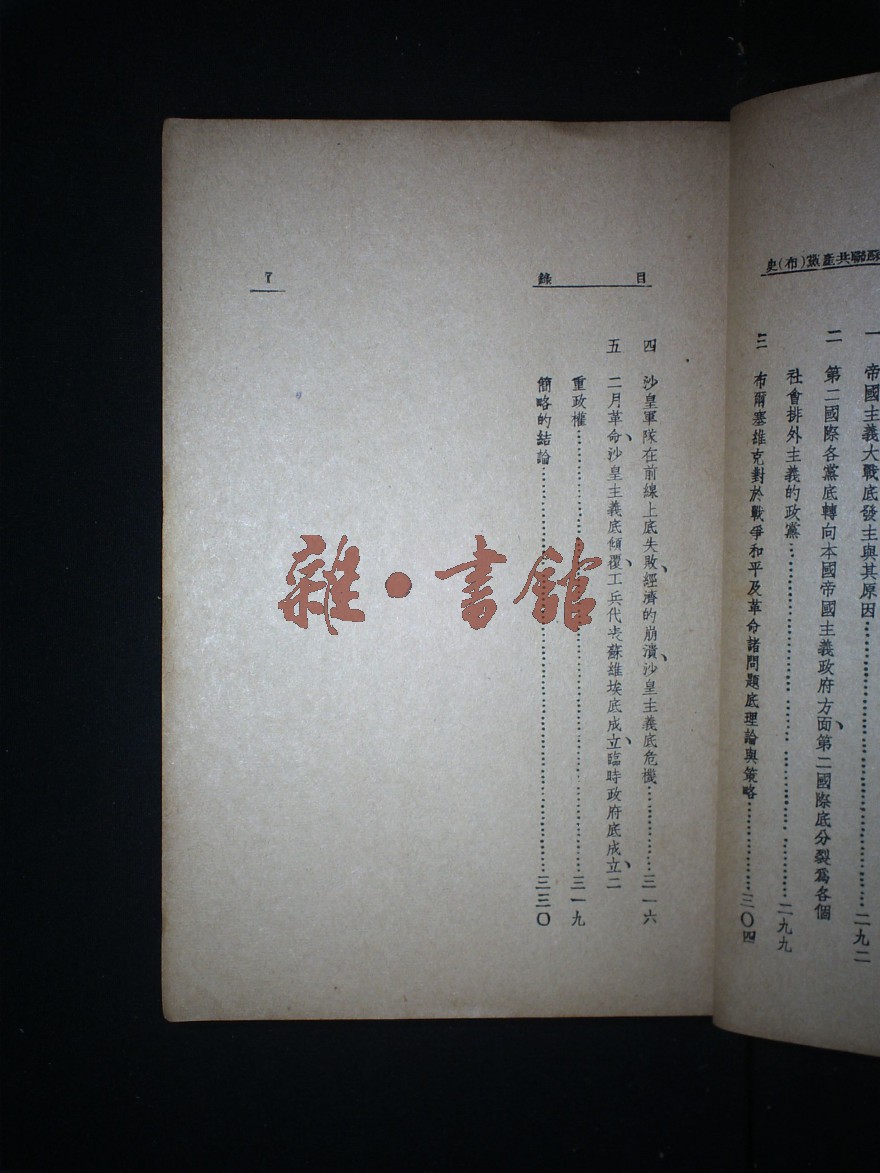 蘇聯共產黨(布)史
一 帝國主義大戰底發生與其原因……………………二九二
二 第二國際各黨底轉向本國帝國主義政府方面、第二國際底分裂爲各個
社會排外主義的政黨……………………二九九
三 布爾塞維克對於戰爭和平及革命諸問題底理論與策略……………三〇四
目錄
7
四 沙皇軍隊在前線上底失敗、經濟的崩潰、沙皇主義底危機……………三一六
五 二月革命、沙皇主義底傾覆、工兵代表蘇維埃底成立、臨時政府底成立、二
重政權……………………三一九
簡略的結論……………………三三〇
雜·書館